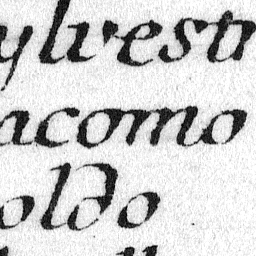 ylvestr
acomo
oldo